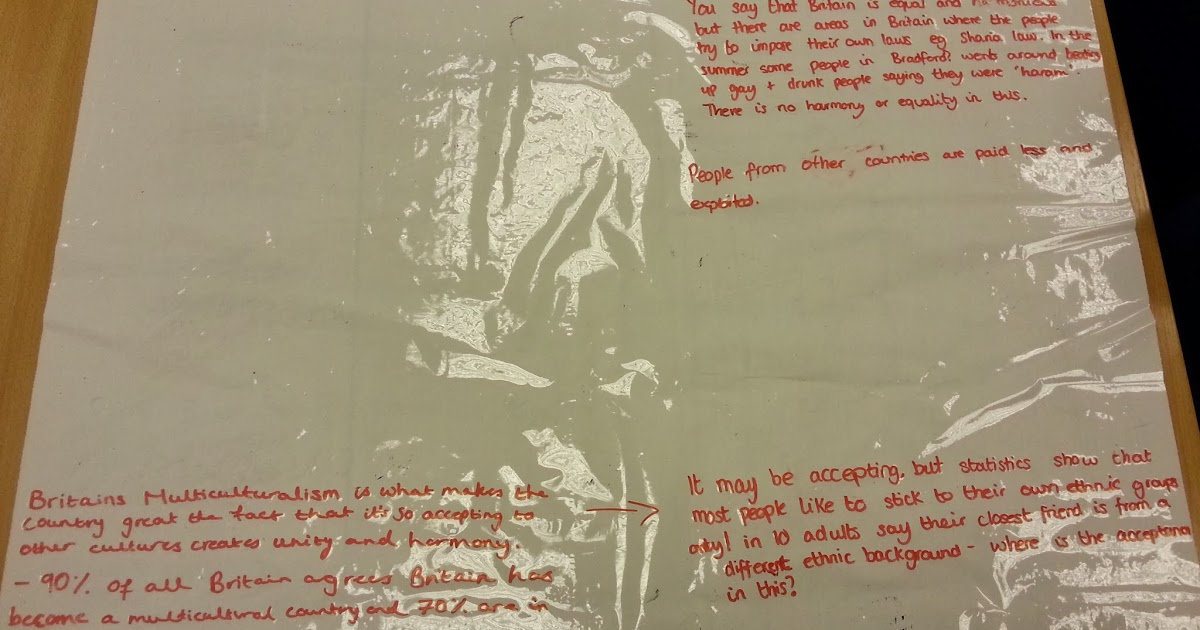 You say that Britain is equal and harmonious
but there are areas in Britain where the people
try to impose their own laws eg Sharia law. In the
summer some people in Bradford? went around beating
up gay + drunk people saying they were "haram".
There is no harmony or equality in this.
People from other countries are paid less and
exploited.
Britains Multiculturalism is what makes the
country great the fact that it's so accepting to
other cultures creates unity and harmony.
- 90% of all Britain agrees Britain has
become a multicultural country and 70% are in
It may be accepting, but statistics show that
most people like to stick to their own ethnic groups
only 1 in 10 adults say their closest friend is from a
different ethnic background - where is the acceptance
in this?